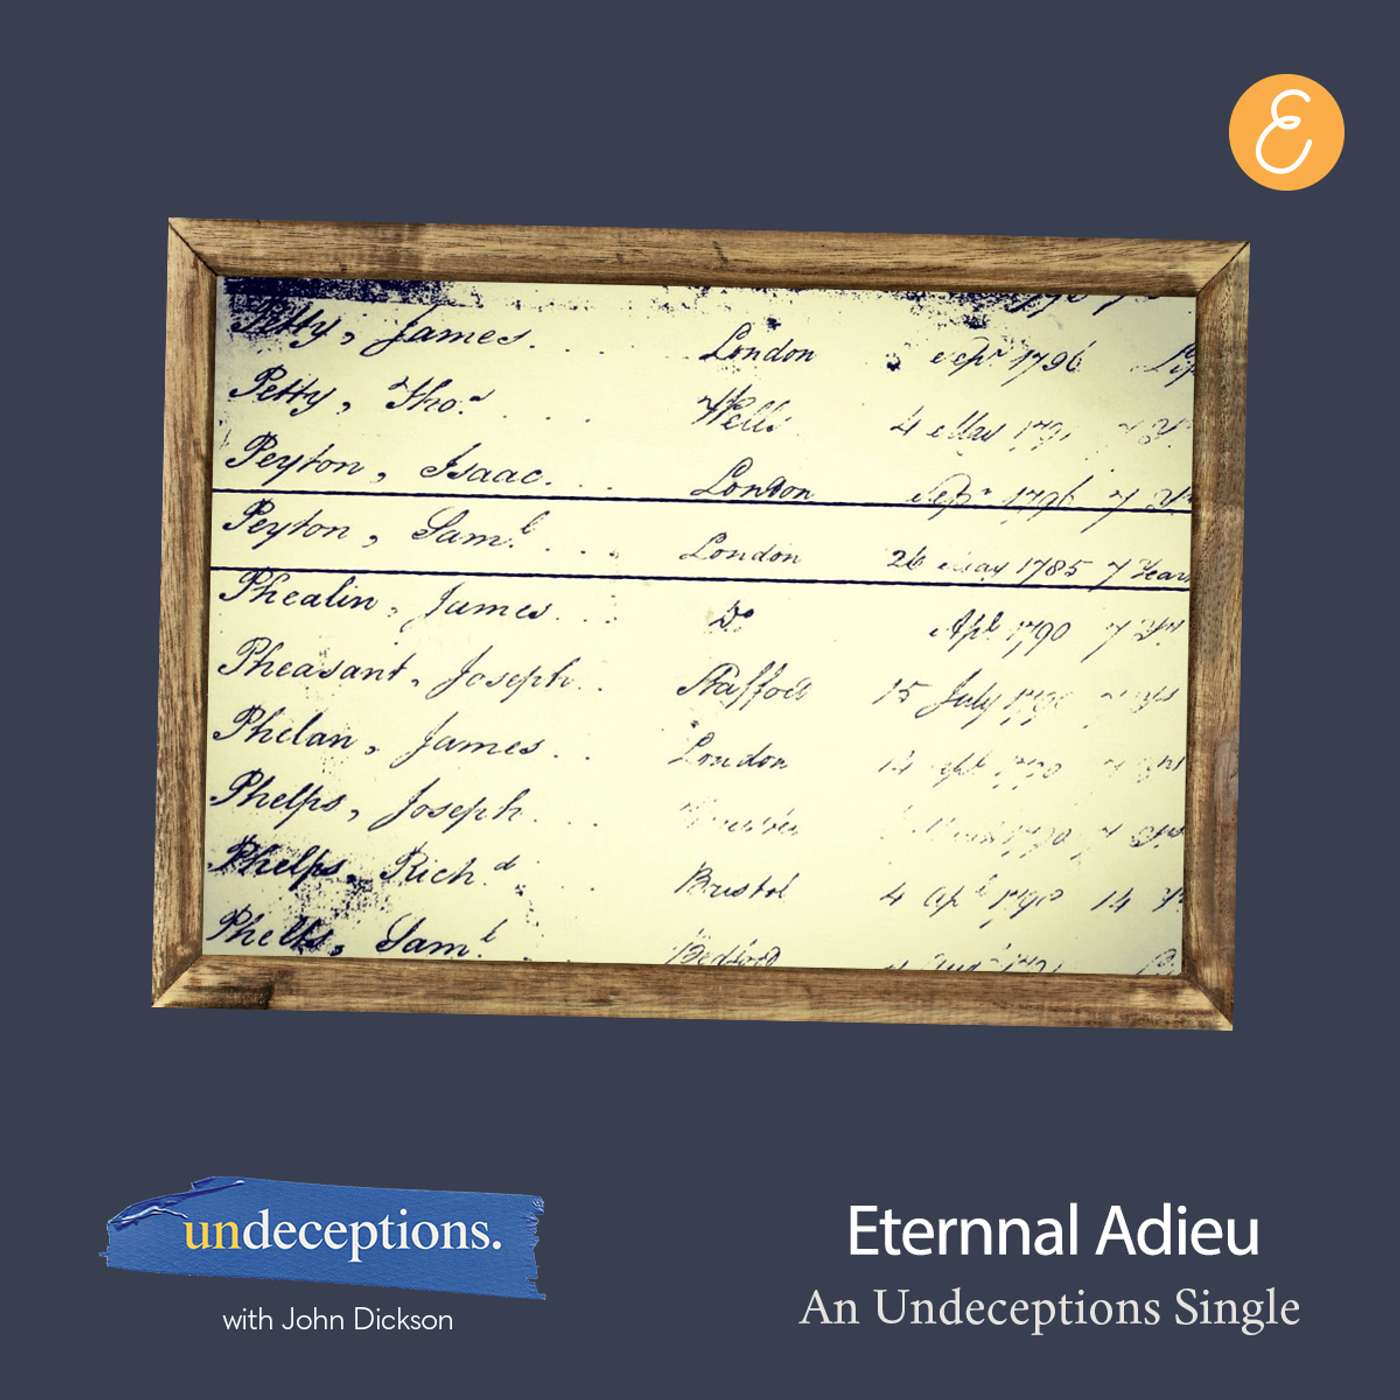 E
Petty, James. London Sepr 1796
Petty, Thos. Wells 4 May
Peyton, Isaac. London Sepr 1796 7
Peyton, Saml. London 26 May 1785 7 Years
Phealin, James Do Apl 1790 7
Pheasant, Joseph Stafford 15 July
Phelan, James London
Phelps, Joseph 7
Phelps, Richd Bristol 4 Apl 1790 14
Saml. Bedford
undeceptions.
with John Dickson
Eternnal Adieu
An Undeceptions Single